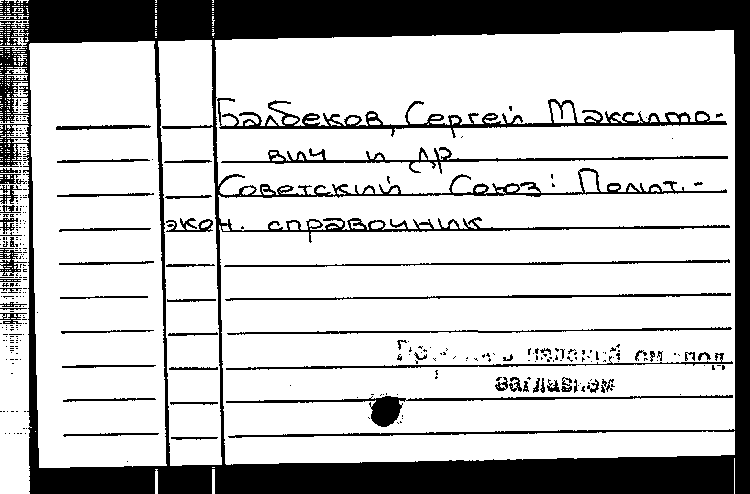 Балбеков, Сергей Максимо-
вич и др
Советский Союз: Полит.-
экон. справочник
изданий см. под
заглавием